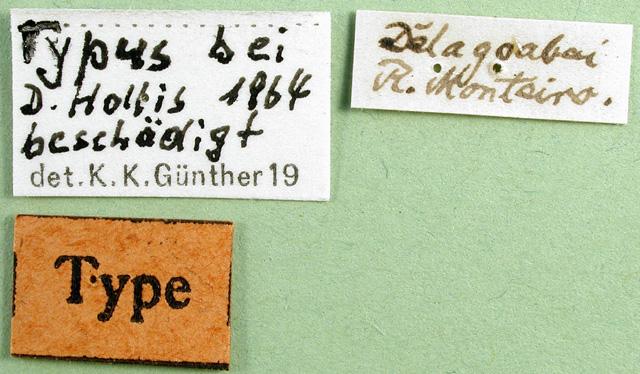 Typus bei
D. Hollis 1964
beschädigt
det. K. K. Günther 19
Delagoabai
R. Monteiro.
Type